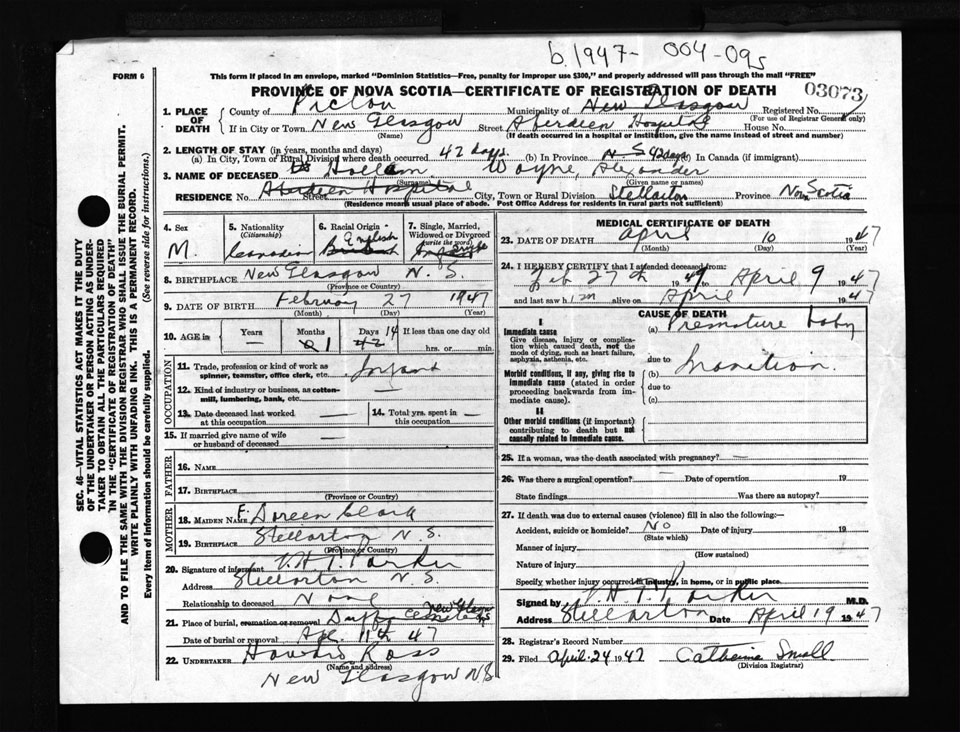 b.1947- 004-095
FORM 6
This form if placed in an envelope, marked "Dominion Statistics—Free, penalty for improper use $300," and properly addressed will pass through the mail "FREE"
PROVINCE OF NOVA SCOTIA—CERTIFICATE OF REGISTRATION OF DEATH 03073
1. PLACE OF DEATH
County of Pictou Municipality of New Glasgow Registered No.
(For use of Registrar General only)
If in City or Town New Glasgow Street Aberdeen Hospital House No.
(Name) (If death occurred in a hospital or institution, give the name instead of street and number)
2. LENGTH OF STAY (in years, months and days)
(a) In City, Town or Rural Division where death occurred 42 days. (b) In Province N S 42 days In Canada (if immigrant)
3. NAME OF DECEASED Wayne, Alexander
(Surname) (Given name or names)
RESIDENCE No. Aberdeen Hospital Street City, Town or Rural Division Stellarton Province Nova Scotia
(Residence means usual place of abode. Post Office Address for residents in rural parts not sufficient)
4. Sex
M.
5. Nationality
(Citizenship)
Canadian
6. Racial Origin
English
7. Single, Married, Widowed or Divorced
(write the word)
Single
8. BIRTHPLACE New Glasgow N. S.
(Province or Country)
9. DATE OF BIRTH February 27 1947
(Month) (Day) (Year)
10. AGE in Years — Months 1 Days 14 42 If less than one day old
hrs. or min.
OCCUPATION
11. Trade, profession or kind of work as spinner, teamster, office clerk, etc. Infant
12. Kind of industry or business, as cotton-mill, lumbering, bank, etc. —
13. Date deceased last worked at this occupation —
14. Total yrs. spent in this occupation —
15. If married give name of wife or husband of deceased —
FATHER
16. NAME
17. BIRTHPLACE
(Province or Country)
MOTHER
18. MAIDEN NAME E. Doreen Clark
19. BIRTHPLACE Stellarton N.S.
(Province or Country)
20. Signature of informant V.H.T. Parker
Address Stellarton N.S.
Relationship to deceased None
21. Place of burial, cremation or removal New Glasgow
Date of burial or removal Apr. 11th 47
22. UNDERTAKER Howard Ross
(Name and address)
New Glasgow N.S
MEDICAL CERTIFICATE OF DEATH
23. DATE OF DEATH April 10 1947
(Month) (Day) (Year)
24. I HEREBY CERTIFY that I attended deceased from:
Feb 27th 1947 to April 9 1947
and last saw him alive on April 1947
CAUSE OF DEATH
I
Immediate cause
Give disease, injury or complication which caused death, not the mode of dying, such as heart failure, asphyxia, asthenia, etc.
(a) Premature baby
due to
Morbid conditions, if any, giving rise to immediate cause (stated in order proceeding backwards from immediate cause).
(b) Inanition.
due to
(c)
II
Other morbid conditions (if important) contributing to death but not causally related to immediate cause.
25. If a woman, was the death associated with pregnancy? —
26. Was there a surgical operation? — Date of operation 19
State findings Was there an autopsy?
27. If death was due to external causes (violence) fill in also the following:—
Accident, suicide or homicide? No Date of injury 19
(State which)
Manner of injury
(How sustained)
Nature of injury
Specify whether injury occurred in industry, in home, or in public place.
Signed by V.H.T. Parker M.D.
Address Stellarton Date April 19 1947
28. Registrar's Record Number
29. Filed April 24 1947 Catherine Small
(Division Registrar)
SEC. 46—VITAL STATISTICS ACT MAKES IT THE DUTY OF THE UNDERTAKER OR PERSON ACTING AS UNDERTAKER TO OBTAIN ALL THE PARTICULARS REQUIRED IN THE "CERTIFICATE OF REGISTRATION OF DEATH" AND TO FILE THE SAME WITH THE DIVISION REGISTRAR WHO SHALL ISSUE THE BURIAL PERMIT.
WRITE PLAINLY WITH UNFADING INK. THIS IS A PERMANENT RECORD.
Every item of information should be carefully supplied. (See reverse side for instructions.)